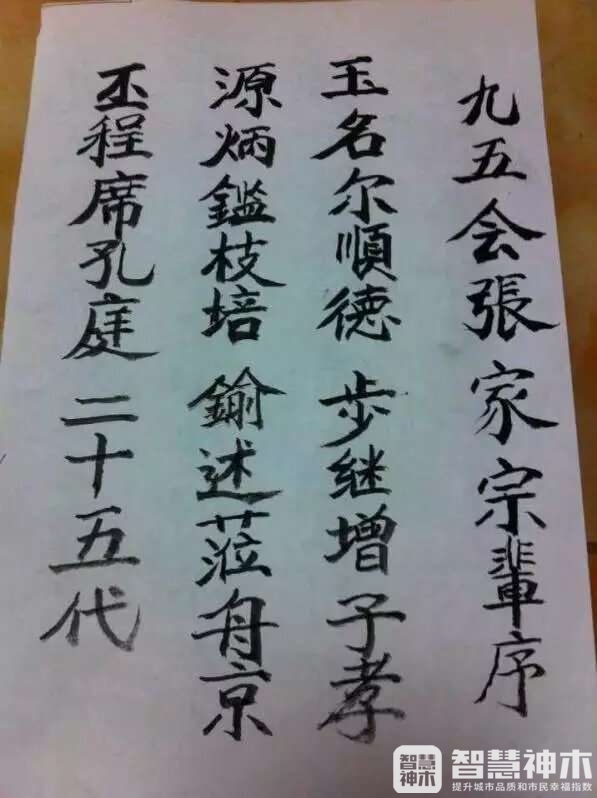 九五会張家宗輩序
玉名尔順德 步继增子孝
源炳鑑枝培 鍮述蒞舟京
丕程席孔庭 二十五代
智慧神木
智慧神木
提升城市品质和市民幸福指数